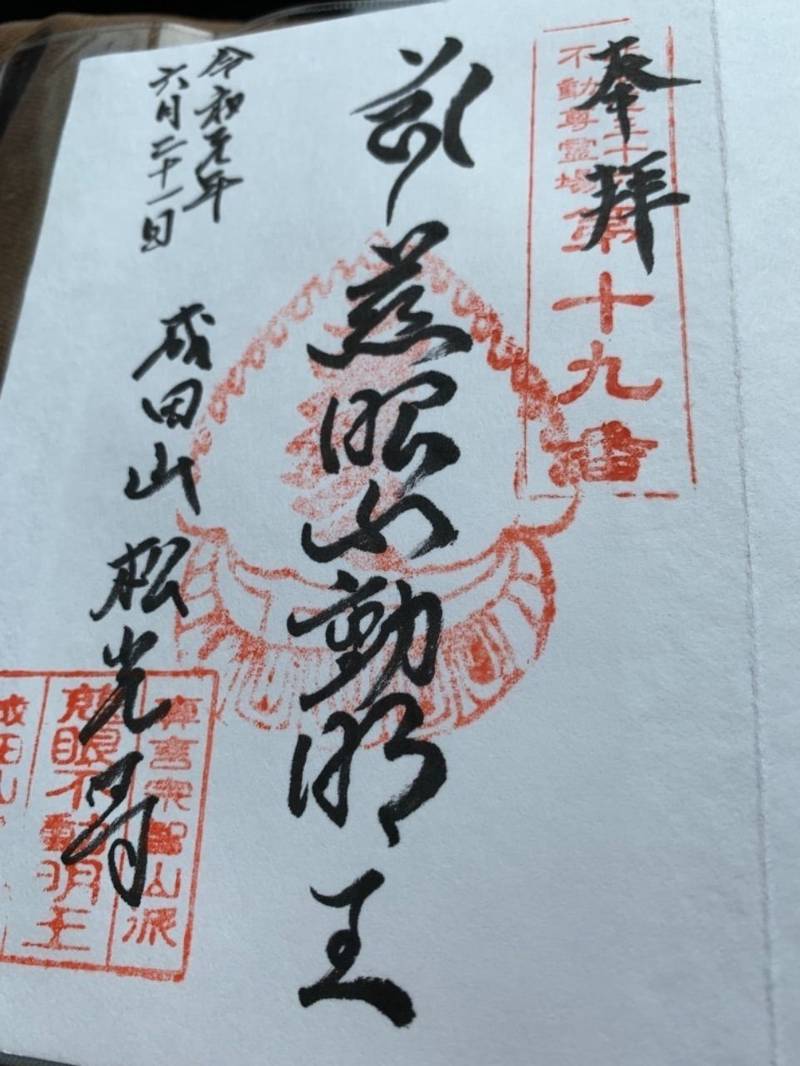 奉拝
不動尊霊場
第十九番
慈眼不動明王
令和元年
六月二十一日
成田山 松光寺
真言宗智山派
慈眼不動明王
成田山